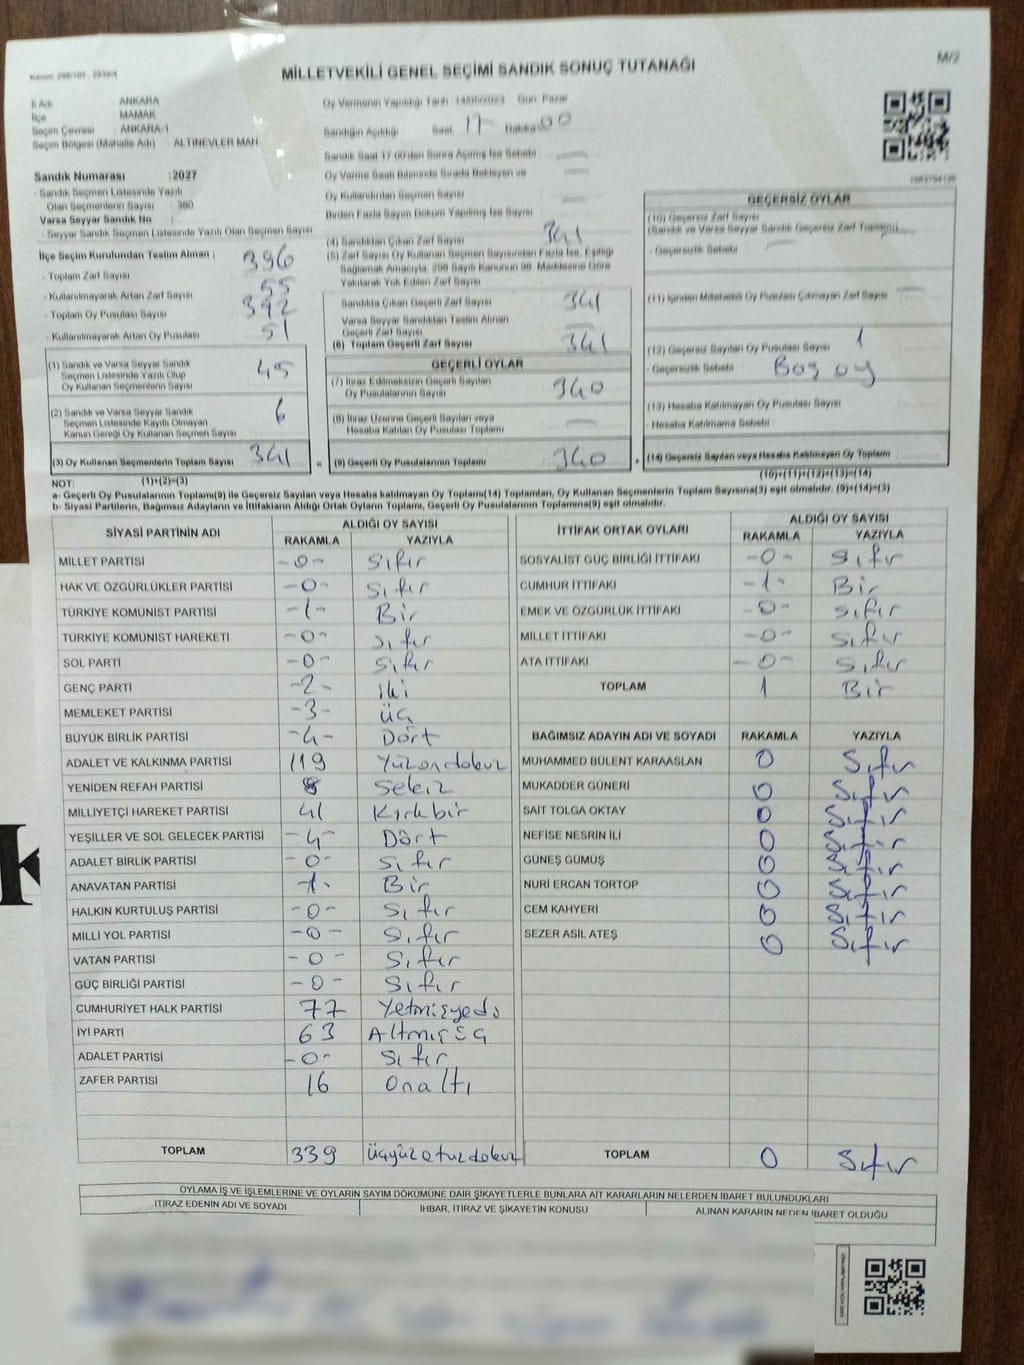 M/2
Kanun: 298/105 , 2839/4
MİLLETVEKİLİ GENEL SEÇİMİ SANDIK SONUÇ TUTANAĞI
İl Adı : ANKARA
İlçe : MAMAK
Seçim Çevresi : ANKARA-1
Seçim Bölgesi (Mahalle Adı) : ALTINEVLER MAH
Sandık Numarası :2027
- Sandık Seçmen Listesinde Yazılı
Olan Seçmenlerin Sayısı : 380
Varsa Seyyar Sandık No :
- Seyyar Sandık Seçmen Listesinde Yazılı Olan Seçmen Sayısı
İlçe Seçim Kurulundan Teslim Alınan :
- Toplam Zarf Sayısı 396
- Kullanılmayarak Artan Zarf Sayısı 55
- Toplam Oy Pusulası Sayısı 392
- Kullanılmayarak Artan Oy Pusulası 51
(1) Sandık ve Varsa Seyyar Sandık
Seçmen Listesinde Yazılı Olup
Oy Kullanan Seçmenlerin Sayısı
(2) Sandık ve Varsa Seyyar Sandık
Seçmen Listesinde Kayıtlı Olmayan
Kanun Gereği Oy Kullanan Seçmen Sayısı 6
(3) Oy Kullanan Seçmenlerin Toplam Sayısı 341 =
Oy Vermenin Yapıldığı Tarih : 14/05/2023 Gün: Pazar
Sandığın Açıldığı Saat 17 Dakika 00
Sandık Saat 17:00'den Sonra Açılmış İse Sebebi
Oy Verme Saati Bitiminde Sırada Bekleyen ve
Oy Kullandırılan Seçmen Sayısı
Birden Fazla Sayım Döküm Yapılmış İse Sayısı
(4) Sandıktan Çıkan Zarf Sayısı 341
(5) Zarf Sayısı Oy Kullanan Seçmen Sayısından Fazla İse, Eşitliği
Sağlamak Amacıyla, 298 Sayılı Kanunun 98. Maddesine Göre
Yakılarak Yok Edilen Zarf Sayısı
Sandıkta Çıkan Geçerli Zarf Sayısı 341
Varsa Seyyar Sandıktan Teslim Alınan
Geçerli Zarf Sayısı
(6) Toplam Geçerli Zarf Sayısı 341
GEÇERLİ OYLAR
(7) İtiraz Edilmeksizin Geçerli Sayılan
Oy Pusulalarının Sayısı 340
(8) İtiraz Üzerine Geçerli Sayılan veya
Hesaba Katılan Oy Pusulası Toplamı
(9) Geçerli Oy Pusulalarının Toplamı 340 +
GEÇERSİZ OYLAR
(10) Geçersiz Zarf Sayısı
(Sandık ve Varsa Seyyar Sandık Geçersiz Zarf Toplamı)
- Geçersizlik Sebebi
(11) İçinden Milletvekili Oy Pusulası Çıkmayan Zarf Sayısı
(12) Geçersiz Sayılan Oy Pusulası Sayısı 1
- Geçersizlik Sebebi Boş oy
(13) Hesaba Katılmayan Oy Pusulası Sayısı
- Hesaba Katılmama Sebebi
(14) Geçersiz Sayılan veya Hesaba Katılmayan Oy Toplamı
(10)+(11)+(12)+(13)=(14)
NOT: (1)+(2)=(3)
a- Geçerli Oy Pusulalarının Toplamı(9) ile Geçersiz Sayılan veya Hesaba katılmayan Oy Toplamı(14) Toplamları, Oy Kullanan Seçmenlerin Toplam Sayısına(3) eşit olmalıdır. (9)+(14)=(3)
b- Siyasi Partilerin, Bağımsız Adayların ve İttifakların Aldığı Ortak Oyların Toplamı, Geçerli Oy Pusulalarının Toplamına(9) eşit olmalıdır.
SİYASİ PARTİNİN ADI ALDIĞI OY SAYISI
RAKAMLA YAZIYLA
MİLLET PARTİSİ -0- Sıfır
HAK VE ÖZGÜRLÜKLER PARTİSİ -0- Sıfır
TÜRKİYE KOMÜNİST PARTİSİ -1- Bir
TÜRKİYE KOMÜNİST HAREKETİ -0- Sıfır
SOL PARTİ -0- Sıfır
GENÇ PARTİ -2- İki
MEMLEKET PARTİSİ -3- üç
BÜYÜK BİRLİK PARTİSİ -4- Dört
ADALET VE KALKINMA PARTİSİ 119 Yüzondokuz
YENİDEN REFAH PARTİSİ 8 Sekiz
MİLLİYETÇİ HAREKET PARTİSİ 41 Kırkbir
YEŞİLLER VE SOL GELECEK PARTİSİ -4- Dört
ADALET BİRLİK PARTİSİ -0- Sıfır
ANAVATAN PARTİSİ -1- Bir
HALKIN KURTULUŞ PARTİSİ -0- Sıfır
MİLLİ YOL PARTİSİ -0- Sıfır
VATAN PARTİSİ -0- Sıfır
GÜÇ BİRLİĞİ PARTİSİ -0- Sıfır
CUMHURİYET HALK PARTİSİ 77 Yetmişyedi
İYİ PARTİ 63 Altmışüç
ADALET PARTİSİ -0- Sıfır
ZAFER PARTİSİ 16 Onaltı
TOPLAM 339 üçyüzotuzdokuz
İTTİFAK ORTAK OYLARI ALDIĞI OY SAYISI
RAKAMLA YAZIYLA
SOSYALİST GÜÇ BİRLİĞİ İTTİFAKI -0- Sıfır
CUMHUR İTTİFAKI -1- Bir
EMEK VE ÖZGÜRLÜK İTTİFAKI -0- Sıfır
MİLLET İTTİFAKI -0- Sıfır
ATA İTTİFAKI -0- Sıfır
TOPLAM 1 Bir
BAĞIMSIZ ADAYIN ADI VE SOYADI RAKAMLA YAZIYLA
MUHAMMED BÜLENT KARAASLAN 0 Sıfır
MUKADDER GÜNERİ 0 Sıfır
SAİT TOLGA OKTAY 0 Sıfır
NEFİSE NESRİN İLİ 0 Sıfır
GÜNEŞ GÜMÜŞ 0 Sıfır
NURİ ERCAN TORTOP 0 Sıfır
CEM KAHYERİ 0 Sıfır
SEZER ASİL ATEŞ 0 Sıfır
TOPLAM 0 Sıfır
OYLAMA İŞ VE İŞLEMLERİNE VE OYLARIN SAYIM DÖKÜMÜNE DAİR ŞİKAYETLERLE BUNLARA AİT KARARLARIN NELERDEN İBARET BULUNDUKLARI
İTİRAZ EDENİN ADI VE SOYADI İHBAR, İTİRAZ VE ŞİKAYETİN KONUSU ALINAN KARARIN NEDEN İBARET OLDUĞU
k